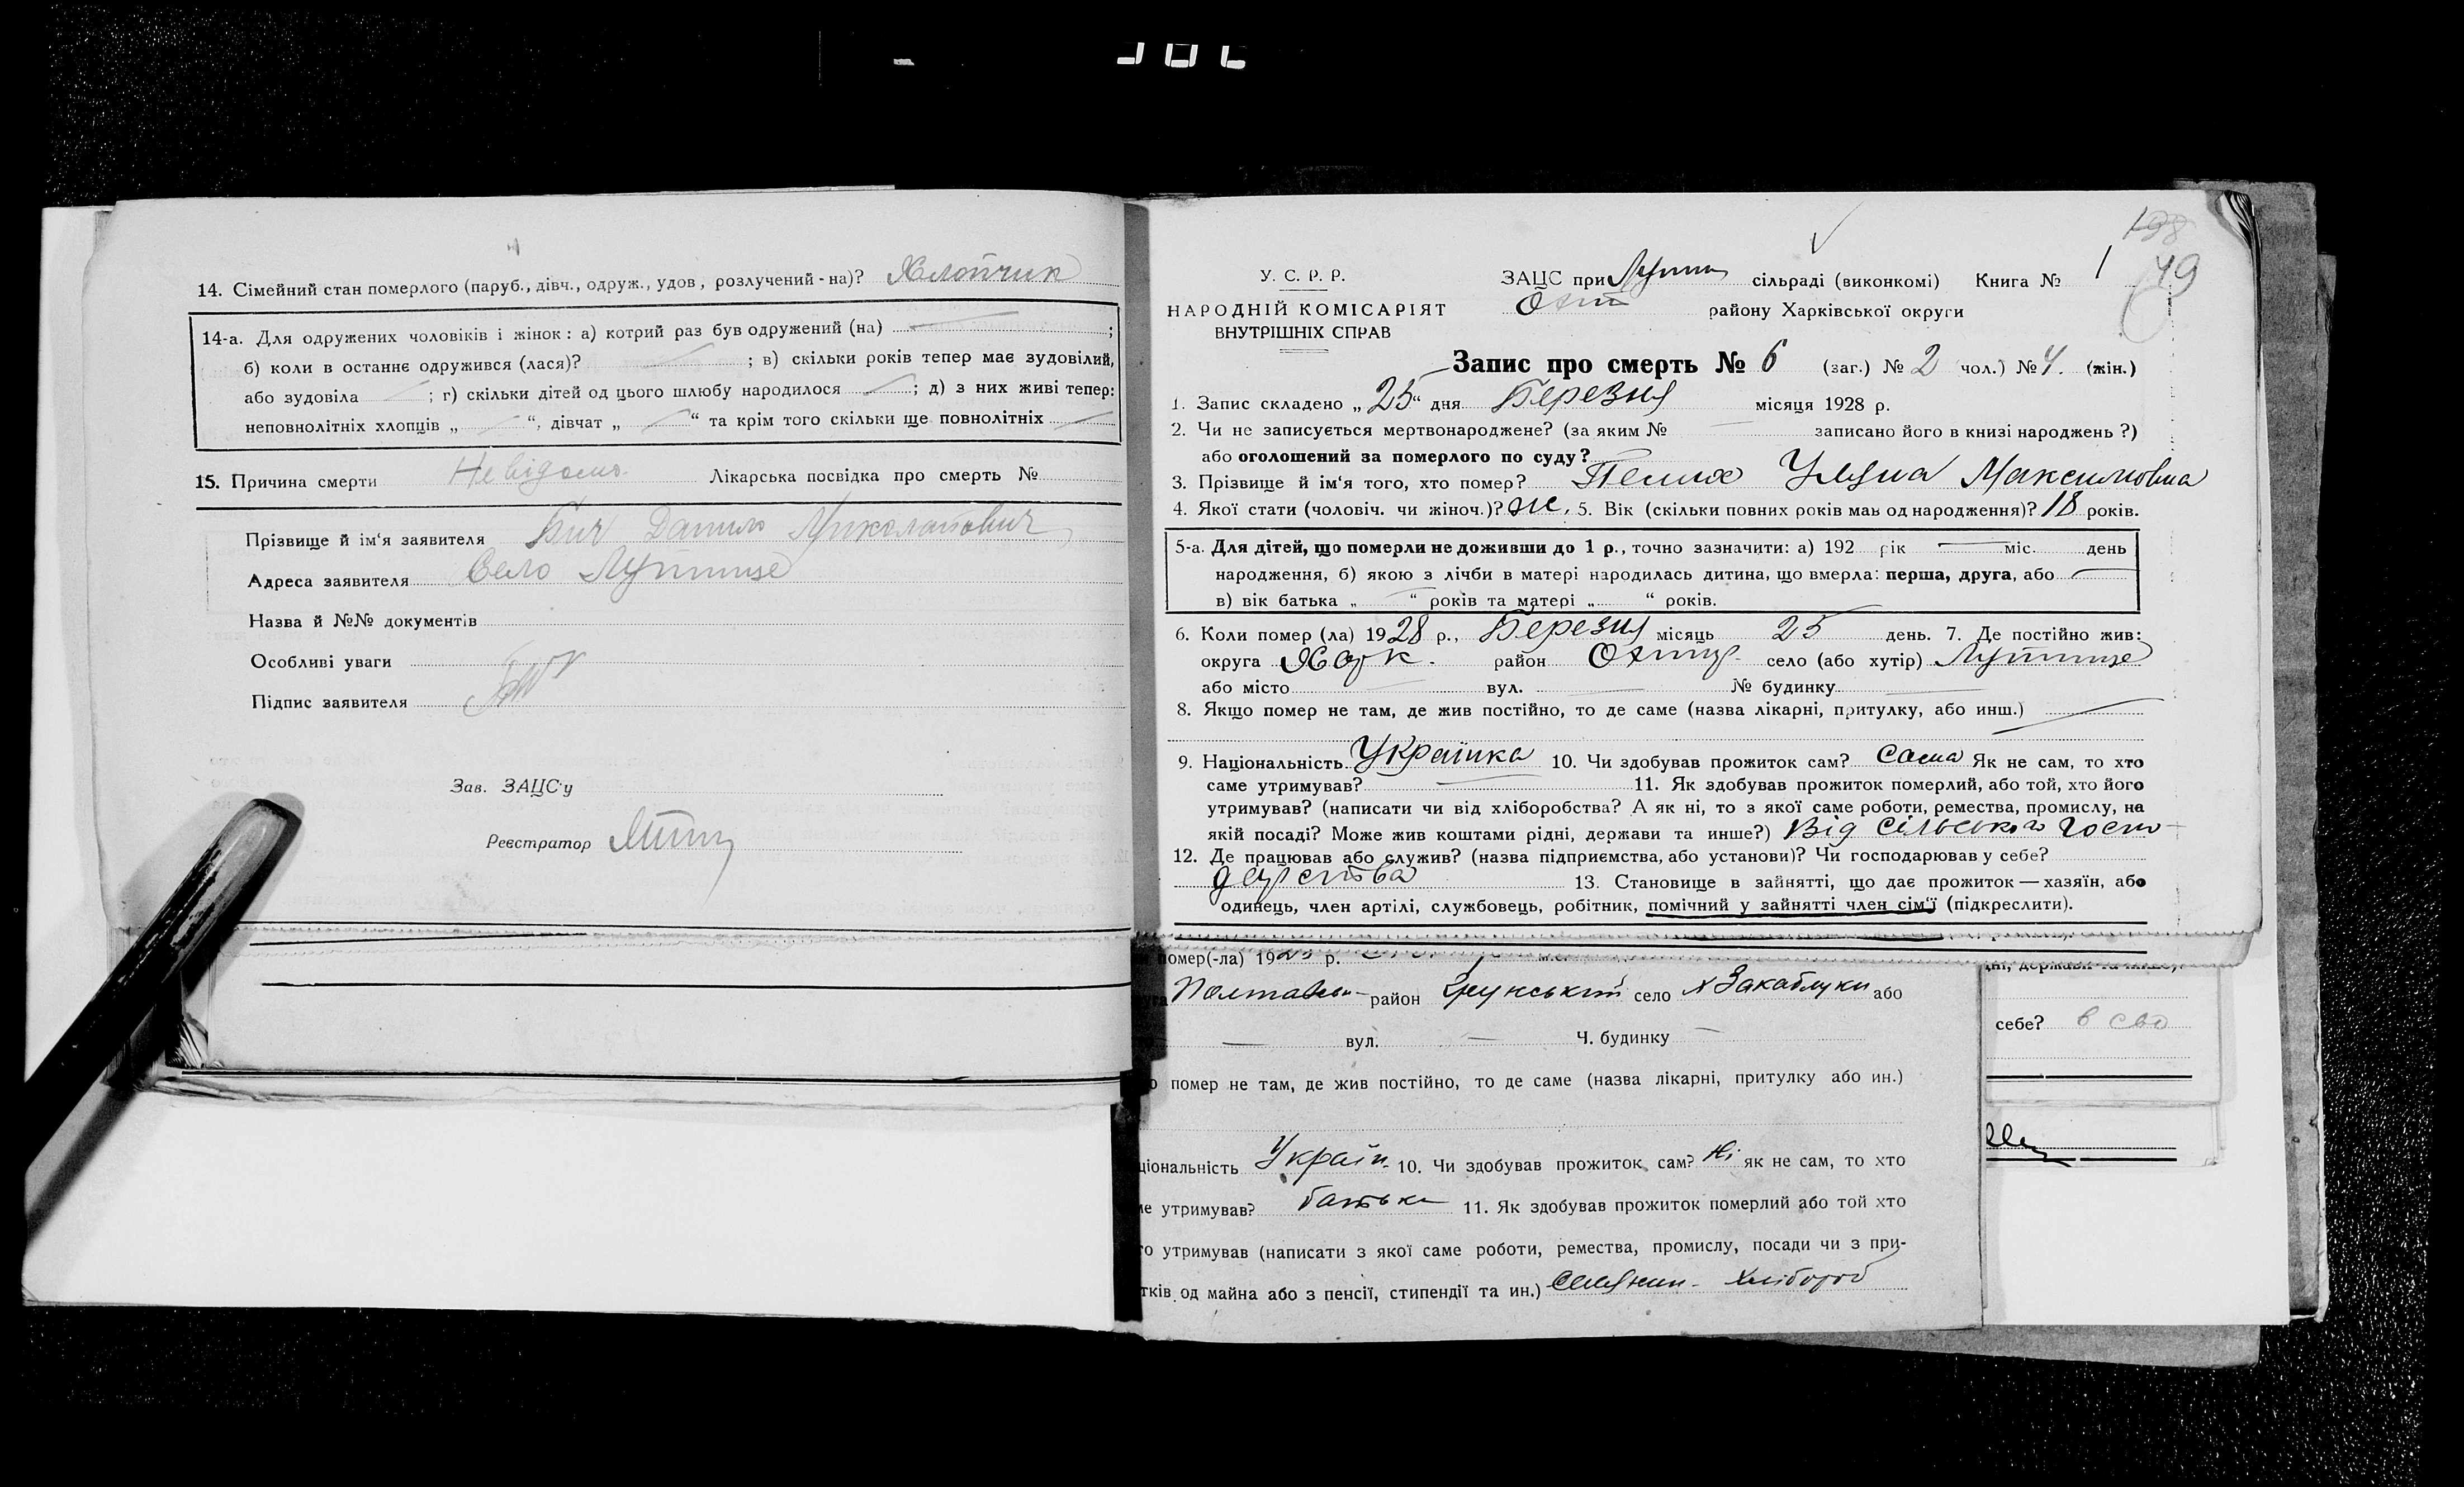 14. Сімейний стан померлого (паруб., дівч., одруж., удов., розлучений-на)? Хлопчик
14-а. Для одружених чоловіків і жінок: а) котрий раз був одружений (на) ;
б) коли в останнє одружився (лася)? ; в) скільки років тепер має зудовілий,
або зудовіла ; г) скільки дітей од цього шлюбу народилося ; д) з них живі тепер:
неповнолітніх хлопців „ “, дівчат „ “ та крім того скільки ще повнолітніх
15. Причина смерти Невідомо Лікарська посвідка про смерть №
Прізвище й ім‘я заявителя Бич Данило Миколайович
Адреса заявителя Село Лутище
Назва й №№ документів
Особливі уваги
Підпис заявителя Бич
Зав. ЗАЦС‘у
Реєстратор
198
79
У. С. Р. Р.
НАРОДНІЙ КОМІСАРІЯТ
ВНУТРІШНІХ СПРАВ
ЗАЦС при Лутищ сільраді (виконкомі) Книга № 1
Охт району Харківської округи
Запис про смерть № 6 (заг.) № 2 чол.) № 4. (жін.)
1. Запис складено „25“ дня Березня місяця 1928 р.
2. Чи не записується мертвонароджене? (за яким № записано його в книзі народжень ?)
або оголошений за померлого по суду?
3. Прізвище й ім‘я того, хто помер? Пелих Уляна Максимовна
4. Якої стати (чоловіч. чи жіноч.)? ж. 5. Вік (скільки повних років мав од народження)? 18 років.
5-а. Для дітей, що померли не доживши до 1 р., точно зазначити: а) 192 рік міс. день
народження, б) якою з лічби в матері народилась дитина, що вмерла: перша, друга, або
в) вік батька „ “ років та матері „ “ років.
6. Коли помер (ла) 1928 р., Березня місяць 25 день. 7. Де постійно жив:
округа Харк. район Охтир. село (або хутір) Лутище
або місто вул. № будинку
8. Якщо помер не там, де жив постійно, то де саме (назва лікарні, притулку, або инш.)
9. Національність Українка 10. Чи здобував прожиток сам? Сама Як не сам, то хто
саме утримував? 11. Як здобував прожиток померлий, або той, хто його
утримував? (написати чи від хліборобства? А як ні, то з якої саме роботи, ремества, промислу, на
якій посаді? Може жив коштами рідні, держави та инше?) Від сільського госпо-
12. Де працював або служив? (назва підприємства, або установи)? Чи господарював у себе?
дарства 13. Становище в зайнятті, що дає прожиток — хазяїн, або
одинець, член артілі, службовець, робітник, помічний у зайнятті член сім‘ї (підкреслити).
омер(-ла) 19 р.
Полтавськ район село Закаблуки або
вул. Ч. будинку
помер не там, де жив постійно, то де саме (назва лікарні, притулку або ин.)
ціональність Україн. 10. Чи здобував прожиток сам? Ні як не сам, то хто
утримував? батьки 11. Як здобував прожиток померлий або той хто
го утримував (написати з якої саме роботи, ремества, промислу, посади чи з при-
тків од майна або з пенсії, стипендії та ин.) Селянин - хлібороб
себе? в сво